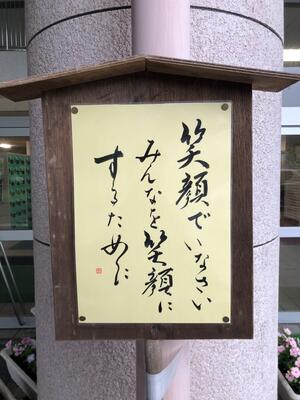 笑顔でいなさい
みんなを笑顔に
するために